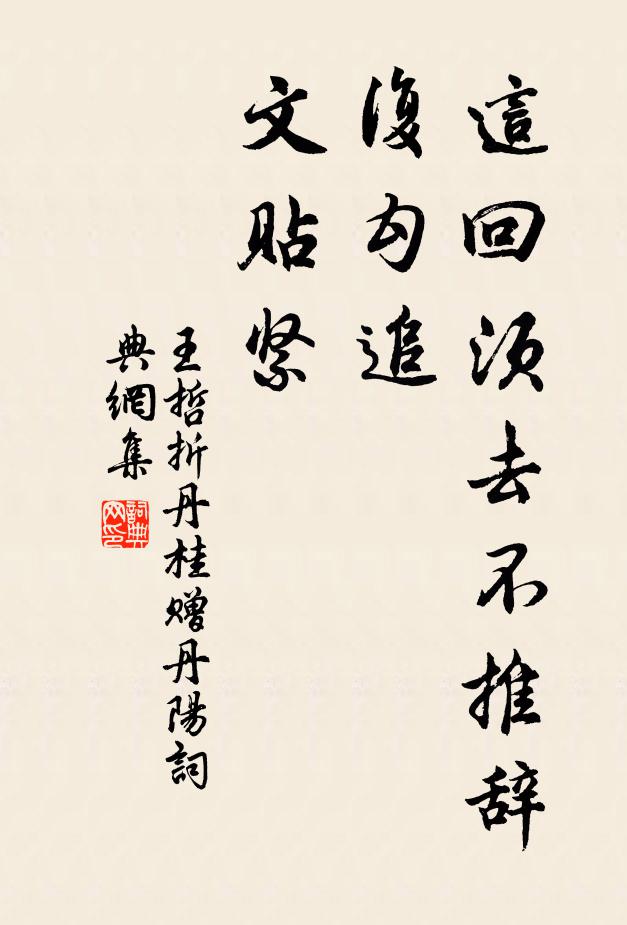 這回須去不推辞
復勾追
文貼紧
王哲折丹桂赠丹陽詞
典網集
詞典
网印